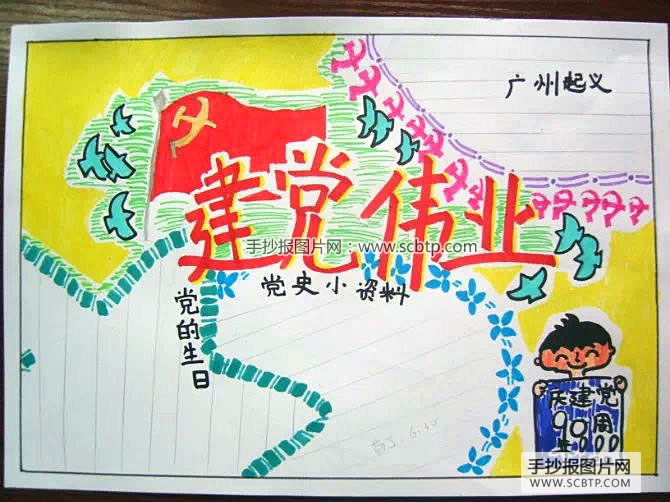 广州起义
建党伟业
手抄报图片网：www.scbtp.com
党史小资料
党的生日
庆建党
90周
年
手抄报图片网
WWW.SCBTP.COM